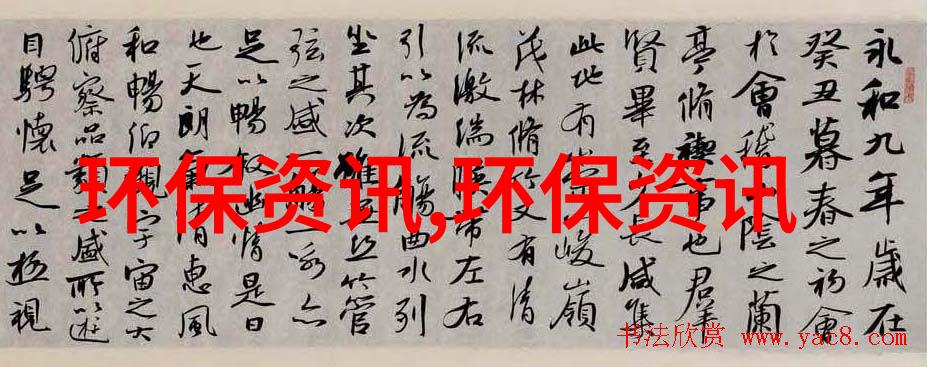 永和九年歲在
癸丑暮春之初會
於會稽山陰之蘭
亭脩稧事也羣
賢畢至少長咸集
此地有崇山峻嶺
茂林脩竹又有清
流激湍暎帶左右
引以為流觴曲水列
坐其次雖無絲竹管
弦之盛一觴一詠亦
足以暢敘幽情是日
也天朗氣清惠風
和暢仰觀宇宙之大
俯察品類之盛所以遊
目騁懷足以極視
环保资讯,环保资讯
书法欣赏 www.yac8.com